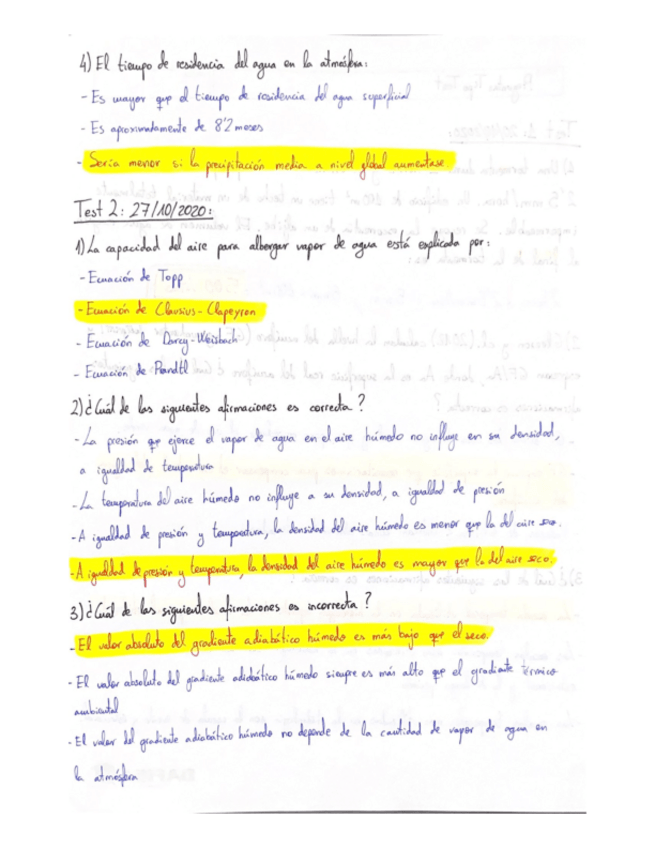 4) El tiempo de residencia del agua en la atmósfera:
- Es mayor que el tiempo de residencia del agua superficial
- Es aproximadamente de 8'2 meses
- Sería menor si la precipitación media a nivel global aumentase.
Test 2: 27/10/2020:
1) La capacidad del aire para albergar vapor de agua está explicada por:
- Ecuación de Topp
- Ecuación de Clausius-Clapeyron
- Ecuación de Darcy-Weisbach
- Ecuación de Prandtl
2) ¿Cuál de las siguientes afirmaciones es correcta?
- La presión que ejerce el vapor de agua en el aire húmedo no influye en su densidad,
a igualdad de temperatura
- La temperatura del aire húmedo no influye a su densidad, a igualdad de presión
- A igualdad de presión y temperatura, la densidad del aire húmedo es menor que la del aire seco.
- A igualdad de presión y temperatura, la densidad del aire húmedo es mayor que la del aire seco.
3) ¿Cuál de las siguientes afirmaciones es incorrecta?
- El valor absoluto del gradiente adiabático húmedo es más bajo que el seco.
- El valor absoluto del gradiente adiabático húmedo siempre es más alto que el gradiente térmico
ambiental
- El valor del gradiente adiabático húmedo no depende de la cantidad de vapor de agua en
la atmósfera